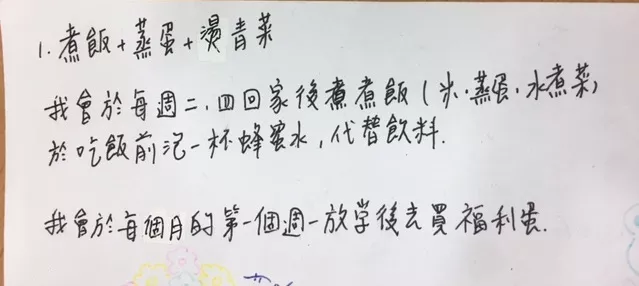 1. 煮飯+蒸蛋+燙青菜
我會於每週二、四回家後煮煮飯(米、蒸蛋、水煮菜)
於吃飯前泡一杯蜂蜜水,代替飲料.
我會於每個月的第一個週一放学後去買福利蛋.